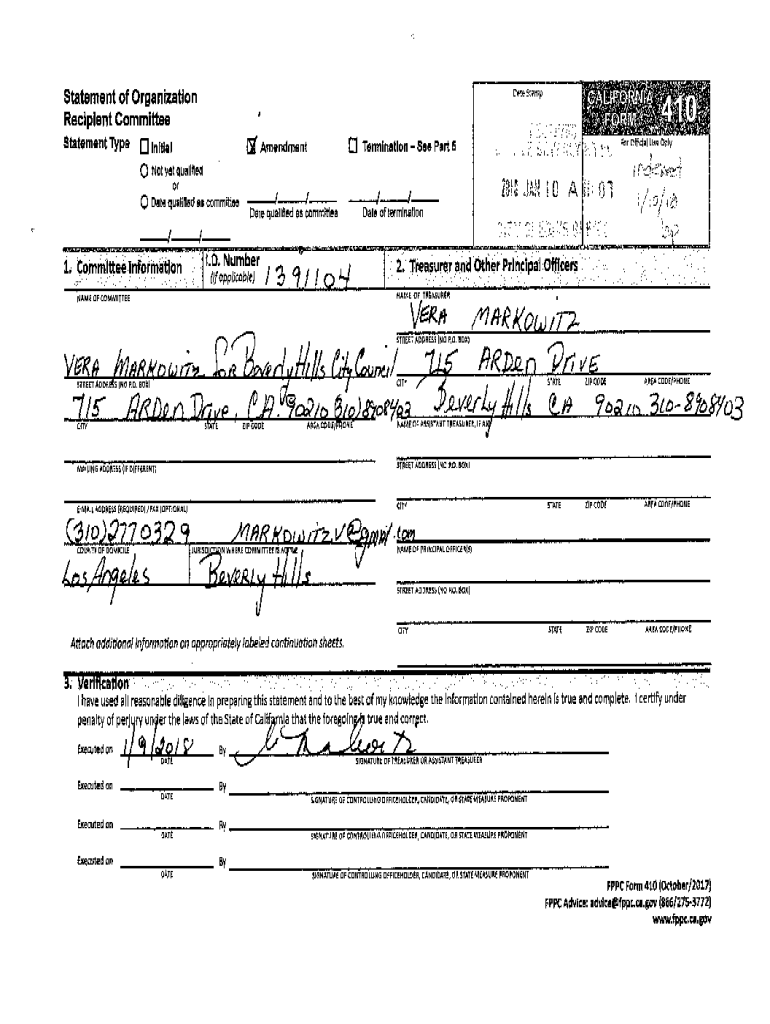 Statement of Organization
Recipient Committee
Statement Type
Initial
Amendment
Termination – See Part 5
Not yet qualified
or
Date qualified as committee
Date qualified as committee
Date of termination
Date Stamp
CALIFORNIA
FORM 410
For Official Use Only
indexed
1/10/18
2018 JAN 10 A
1. Committee Information
I.D. Number
(if applicable)
1391104
2. Treasurer and Other Principal Officers
NAME OF COMMITTEE
VERA MARKOWITZ for Beverly Hills City Council
STREET ADDRESS (NO P.O. BOX)
715 ARDen Drive, CA. 90210 310) 8908403
CITY STATE ZIP CODE AREA CODE/PHONE
MAILING ADDRESS (IF DIFFERENT)
E-MAIL ADDRESS (REQUIRED) / FAX (OPTIONAL)
(310)2770329 MARKOWITZV@gmail.com
COUNTY OF DOMICILE
JURISDICTION WHERE COMMITTEE IS ACTIVE
Los Angeles
Beverly Hills
Attach additional information on appropriately labeled continuation sheets.
NAME OF TREASURER
VERA MARKOWITZ
STREET ADDRESS (NO P.O. BOX)
715 ARDen DRIVE
CITY STATE ZIP CODE AREA CODE/PHONE
Beverly Hills CA 90210 310-8908403
NAME OF ASSISTANT TREASURER, IF ANY
STREET ADDRESS (NO P.O. BOX)
CITY STATE ZIP CODE AREA CODE/PHONE
NAME OF PRINCIPAL OFFICER(S)
STREET ADDRESS (NO P.O. BOX)
CITY STATE ZIP CODE AREA CODE/PHONE
3. Verification
I have used all reasonable diligence in preparing this statement and to the best of my knowledge the information contained herein is true and complete. I certify under
penalty of perjury under the laws of the State of California that the foregoing is true and correct.
Executed on 1/9/2018 By
DATE SIGNATURE OF TREASURER OR ASSISTANT TREASURER
Executed on By
DATE SIGNATURE OF CONTROLLING OFFICEHOLDER, CANDIDATE, OR STATE MEASURE PROPONENT
Executed on By
DATE SIGNATURE OF CONTROLLING OFFICEHOLDER, CANDIDATE, OR STATE MEASURE PROPONENT
Executed on By
DATE SIGNATURE OF CONTROLLING OFFICEHOLDER, CANDIDATE, OR STATE MEASURE PROPONENT
FPPC Form 410 (October/2017)
FPPC Advice: advice@fppc.ca.gov (866/275-3772)
www.fppc.ca.gov